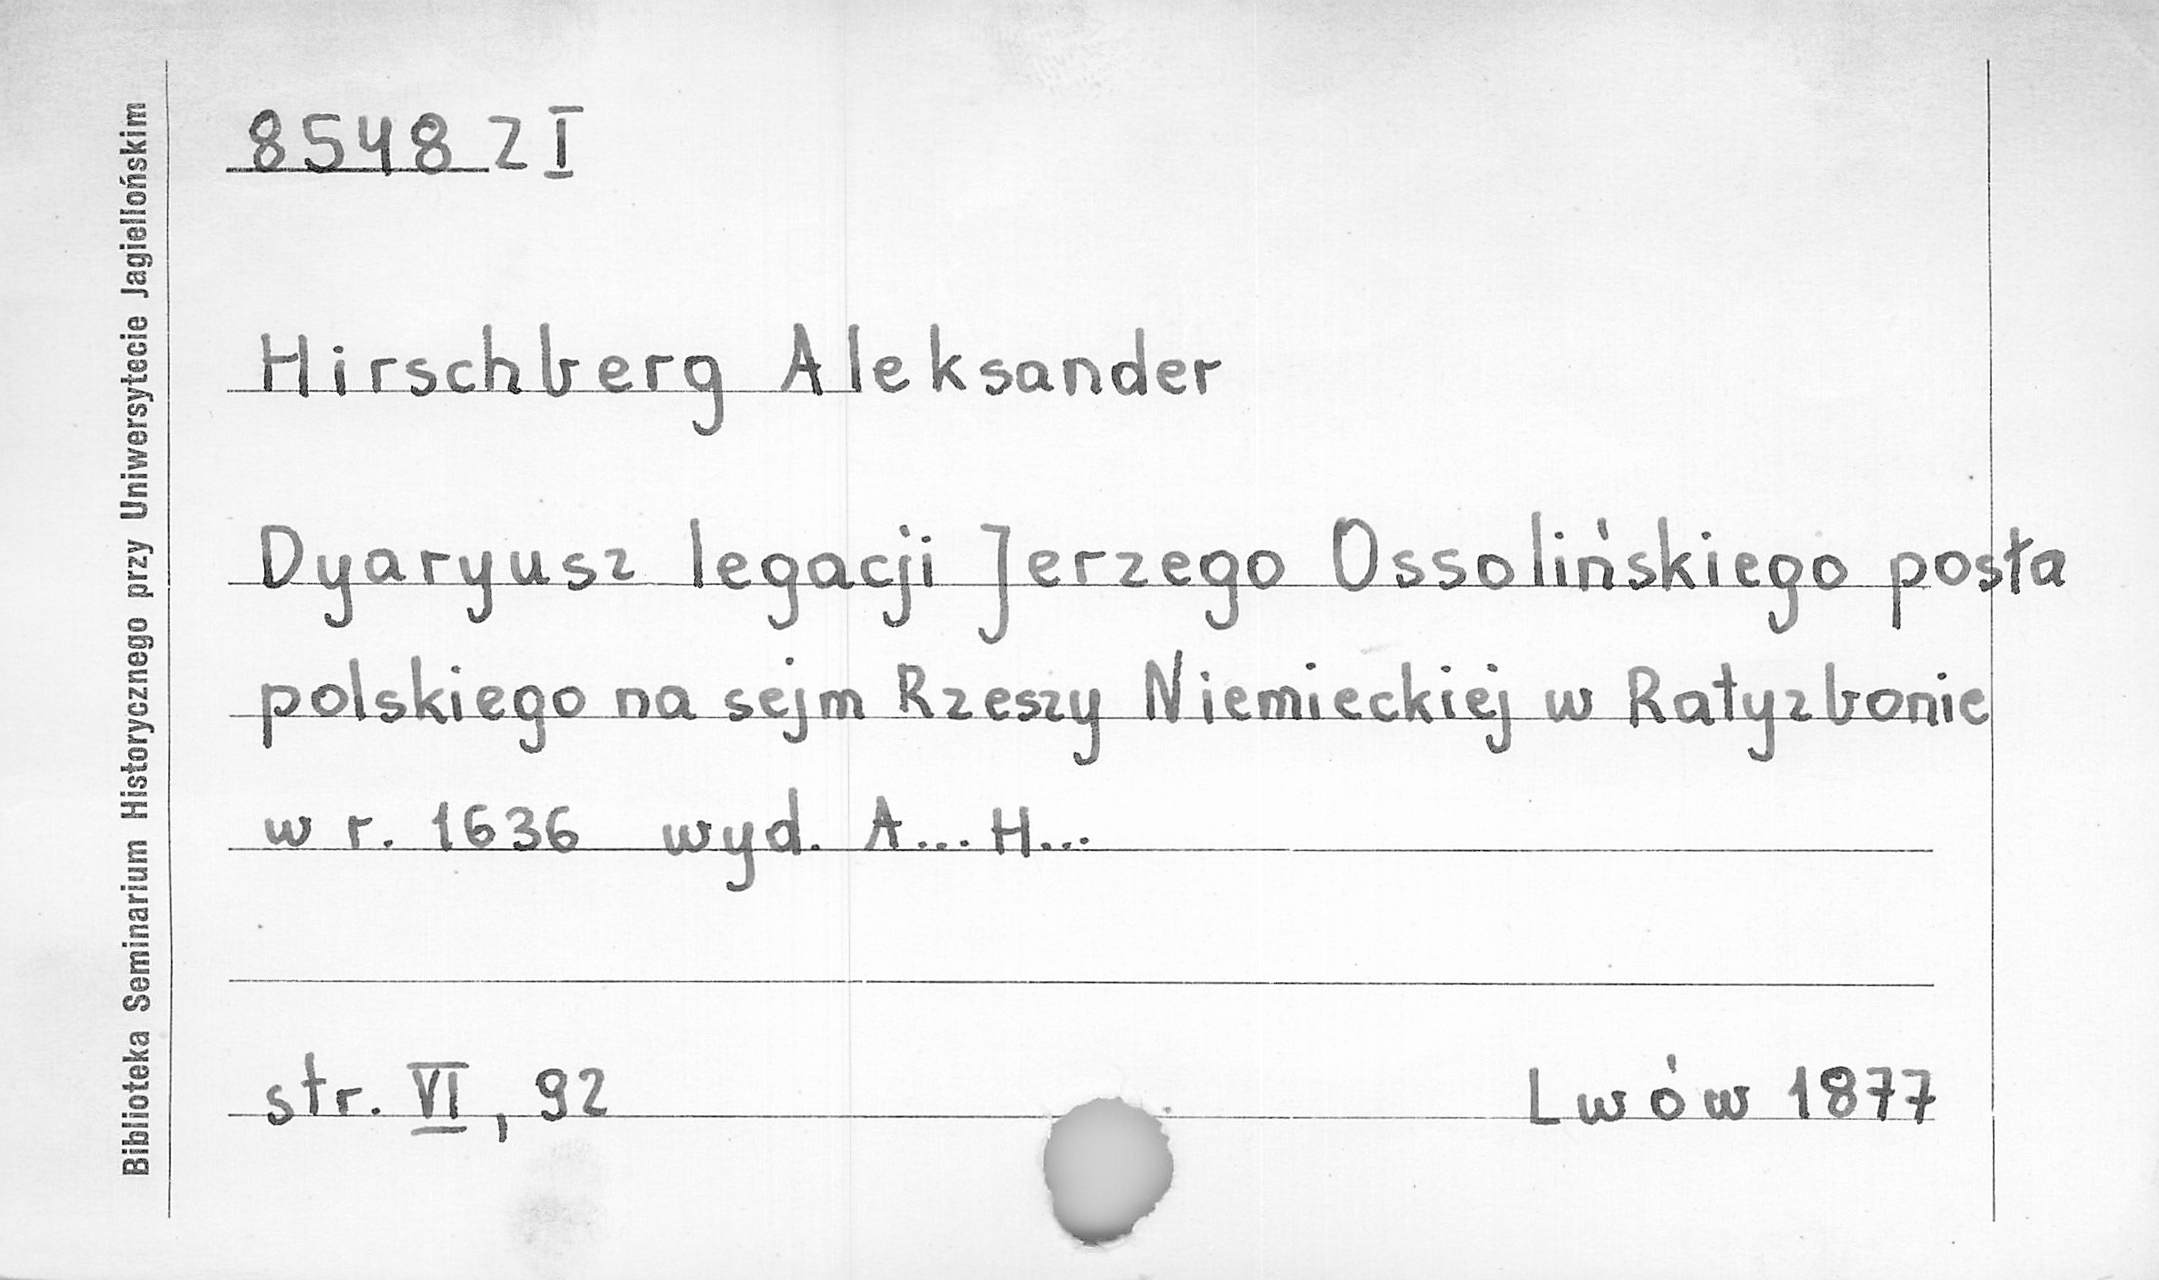 Biblioteka Seminarium Historycznego przy Uniwersytecie Jagiellońskim
8548 Z I
Hirschberg Aleksander
Dyaryusz legacji Jerzego Ossolińskiego posła
polskiego na sejm Rzeszy Niemieckiej w Ratyzbonie
w r. 1636 wyd. A... H...
str. VI, 92
Lwów 1877